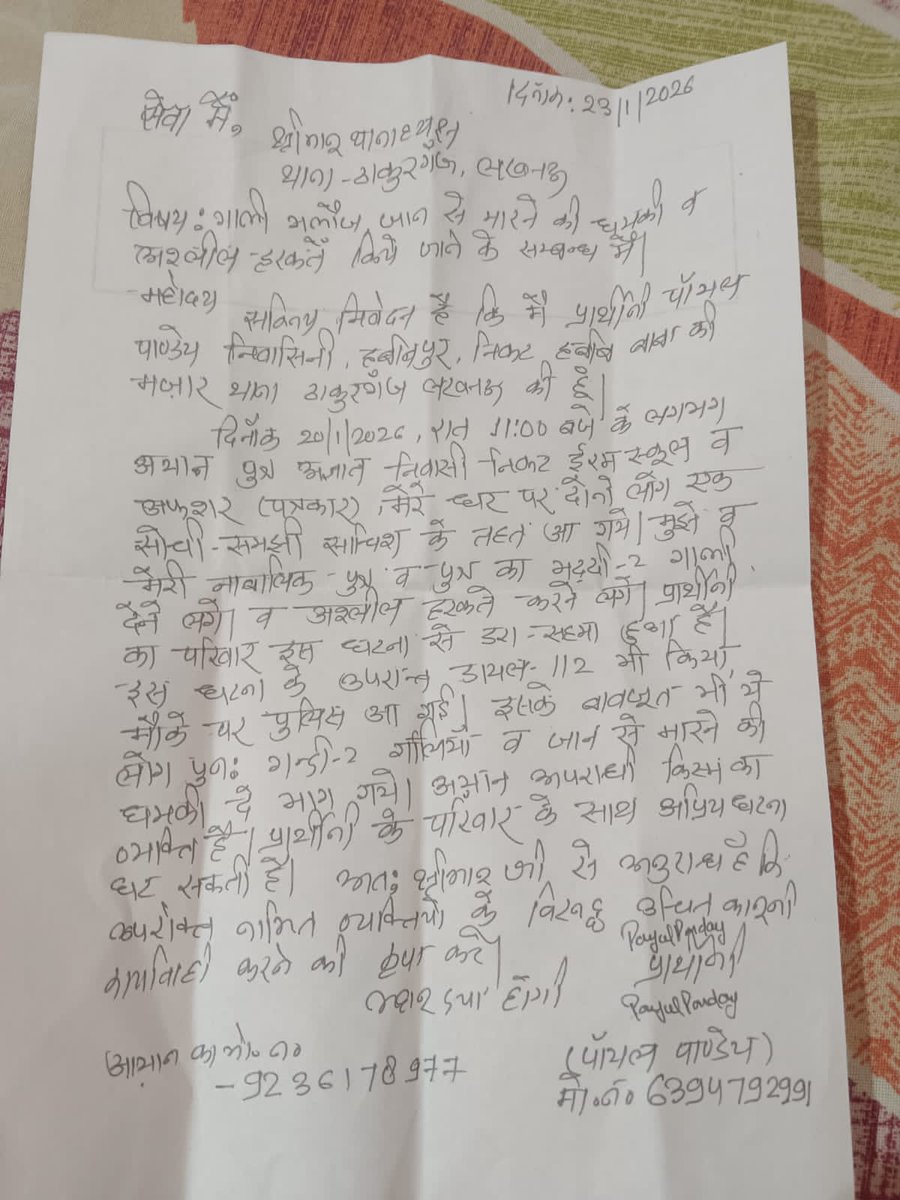 दिनाँक: 23/1/2026
सेवा में,
श्रीमान थानाध्यक्ष
थाना-ठाकुरगंज, लखनऊ
विषय: गाली गलौज जान से मारने की धमकी व
अश्लील हरकतें किये जाने के सम्बन्ध में।
महोदय
सविनय निवेदन है कि मैं प्रार्थीनी पॉयल
पाण्डेय निवासिनी, हुबीबपुर, निकट हबीब बाबा की
मज़ार थाना ठाकुरगँज लखनऊ की हूँ।
दिनाँक 20/1/2026, रात 11:00 बजे के लगभग
अयान पुत्र अज्ञात निवासी निकट ईरम स्कूल व
अफशर (पत्रकार), मेरे घर पर दोनो लोग एक
सोची-समझी साजिश के तहत आ गये। मुझे व
मेरी नाबालिक पुत्र व पुत्र का भद्दी-2 गाली
देने लगे। व अश्लील हरकते करने लगे। प्रार्थीनी
का परिवार इस घटना से डरा-सहमा हुआ है।
इस घटना के उपरान्त डायल-112 भी किया,
मौके पर पुलिस आ गई। इसके बावजूत भी, ये
लोग पुन: गन्दी-2 गालियाँ व जान से मारने की
धमकी दे भाग गये। अयान अपराधी किस्म का
व्यक्ति है। प्रार्थीनी के परिवार के साथ अप्रिय घटना
घट सकती है। अत: श्रीमान जी से अनुरोध है कि
उपरोक्त नामित व्यक्तियो के विरुद्ध उचित कानूनी
Payal Panday
कार्यवाही करने की कृपा करें। प्रार्थीनी
दया होगी Payal Panday
आयान का मो० न०
-9236178977
(पॉयल पाण्डेय)
मो० न० 6394792991